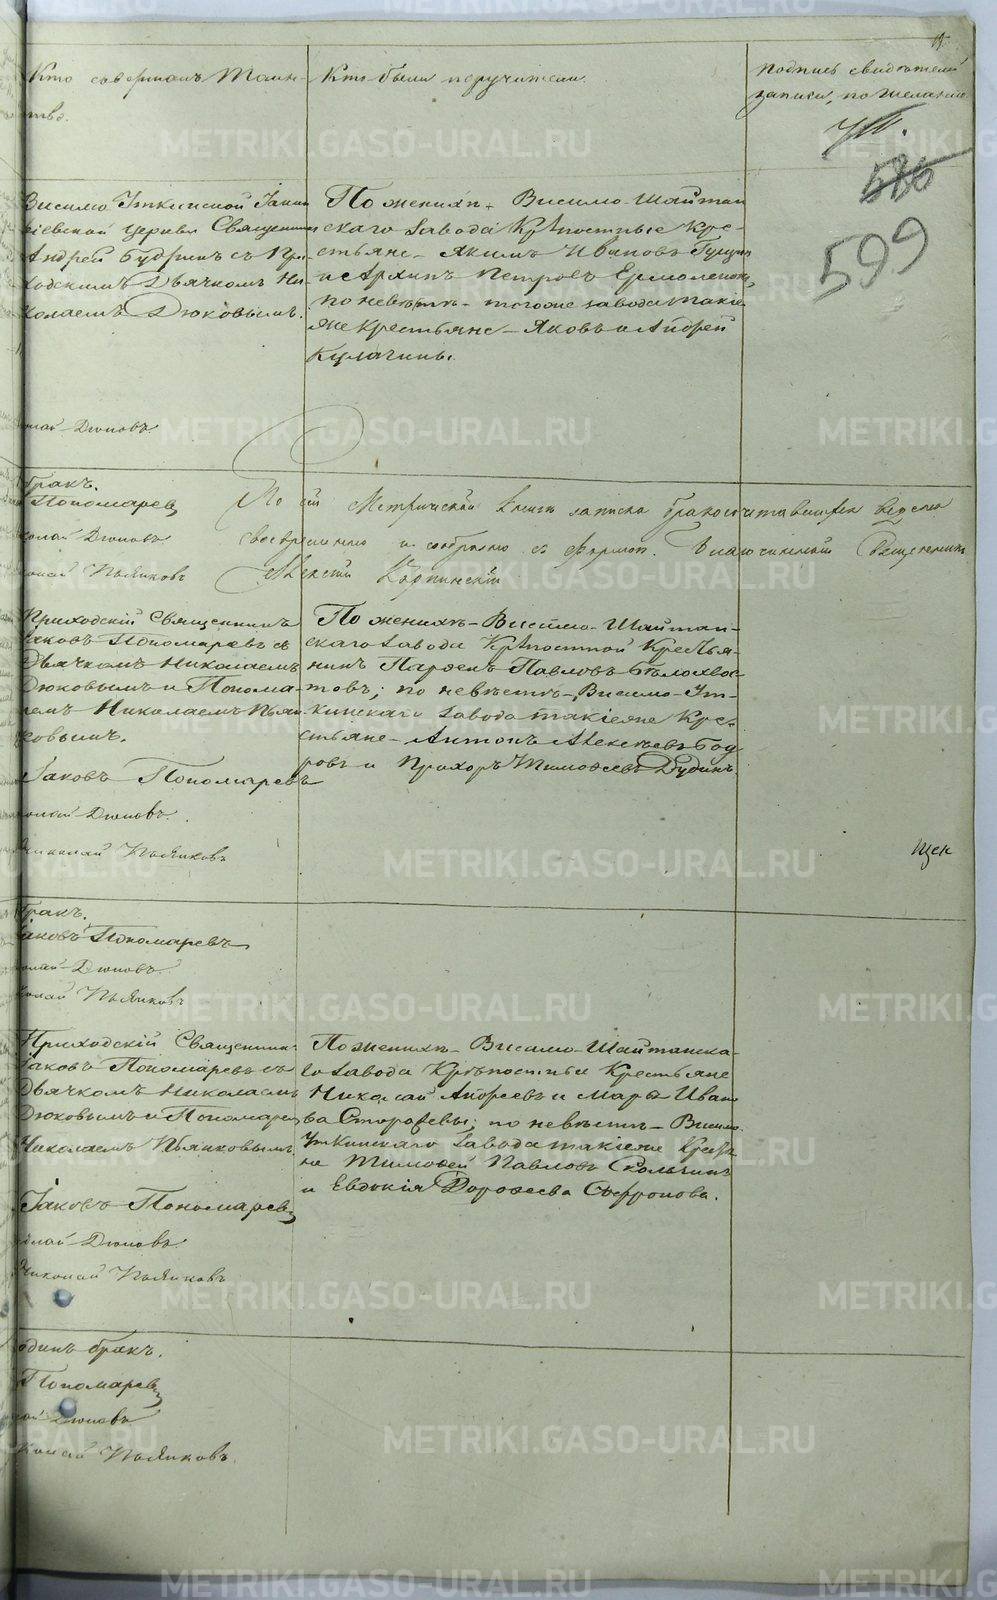 Кто совершалъ Таин-
ство.
Кто были поручители.
Подпись свидѣтелей
записи, по желанію.
586
599
Висимо Уткинской Іаки-
ѳіевской церкви Священникъ
Андрей Будринъ съ При-
ходскимъ Дьячкомъ Ни-
колаемъ Дюковымъ.
По женихѣ - Висимо-Шайтан-
скаго Завода Крѣпостные Кре-
стьяне - Якимъ Ивановъ
и Архипъ Петровъ Ермоленковъ,
по невѣстѣ - тогоже завода такіе-
же крестьяне - Яковъ и Андрей
Кулагины.
колай Дюковъ
бракъ.
Пономаревъ
колай Дюковъ
колай Пьянковъ
По сей Метрической книгѣ записка бракосочитавшихся ведена
своевременно и сообразно съ формою. Благочинный Священникъ
Алексѣй Карпинскій
Приходскій Священникъ
Іаковъ Пономаревъ съ
Дьячкомъ Николаемъ
Дюковымъ и Понома-
ремъ Николаемъ Пьян-
ковымъ.
По женихѣ - Висимо-Шайтан-
скаго Завода Крѣпостной Крестья-
нинъ Парѳенъ Павловъ Бѣлохвос-
товъ; по невѣстѣ - Висимо-Ут-
кинскаго Завода такіеже Кре-
стьяне - Антонъ Алексѣевъ Бод
ровъ и Прохоръ Тимоѳеевъ Дудинъ
Іаковъ Пономаревъ
колай Дюковъ.
Николай Пьянковъ
бракъ.
Іаковъ Пономаревъ
колай Дюковъ
колай Пьянковъ
Приходскій Священникъ
Іаковъ Пономаревъ съ
Дьячкомъ Николаемъ
Дюковымъ и Пономаремъ
Николаемъ Пьянковымъ
По женихѣ - Висимо-Шайтанска-
го Завода Крѣпостные Крестьяне
Николай Андреевъ и Марѳа Ивано-
ва Сторожевы; по невѣстѣ - Висимо-
Уткинскаго Завода такіеже Крестья-
не Тимоѳей Павловъ
и Евдокія Дороѳеева Сафронова.
Іаковъ Пономаревъ
колай Дюковъ
Николай Пьянковъ
одинъ бракъ.
Пономаревъ
лай Дюковъ
колай Пьянковъ
METRIKI.GASO-URAL.RU